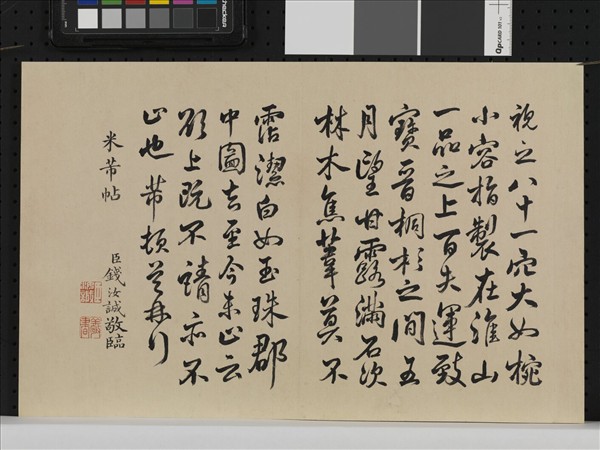 視之八十一穴大如椀
小容指製在淮山
一品之上百夫運致
寶晉桐杉之間五
月望甘露滿石次
林木焦葦莫不
霑潔白如玉珠郡
中圖去至今未止云
欲上既不請亦不
止也芾頓首
米芾帖
臣錢汝誠敬臨
QpCARD 101